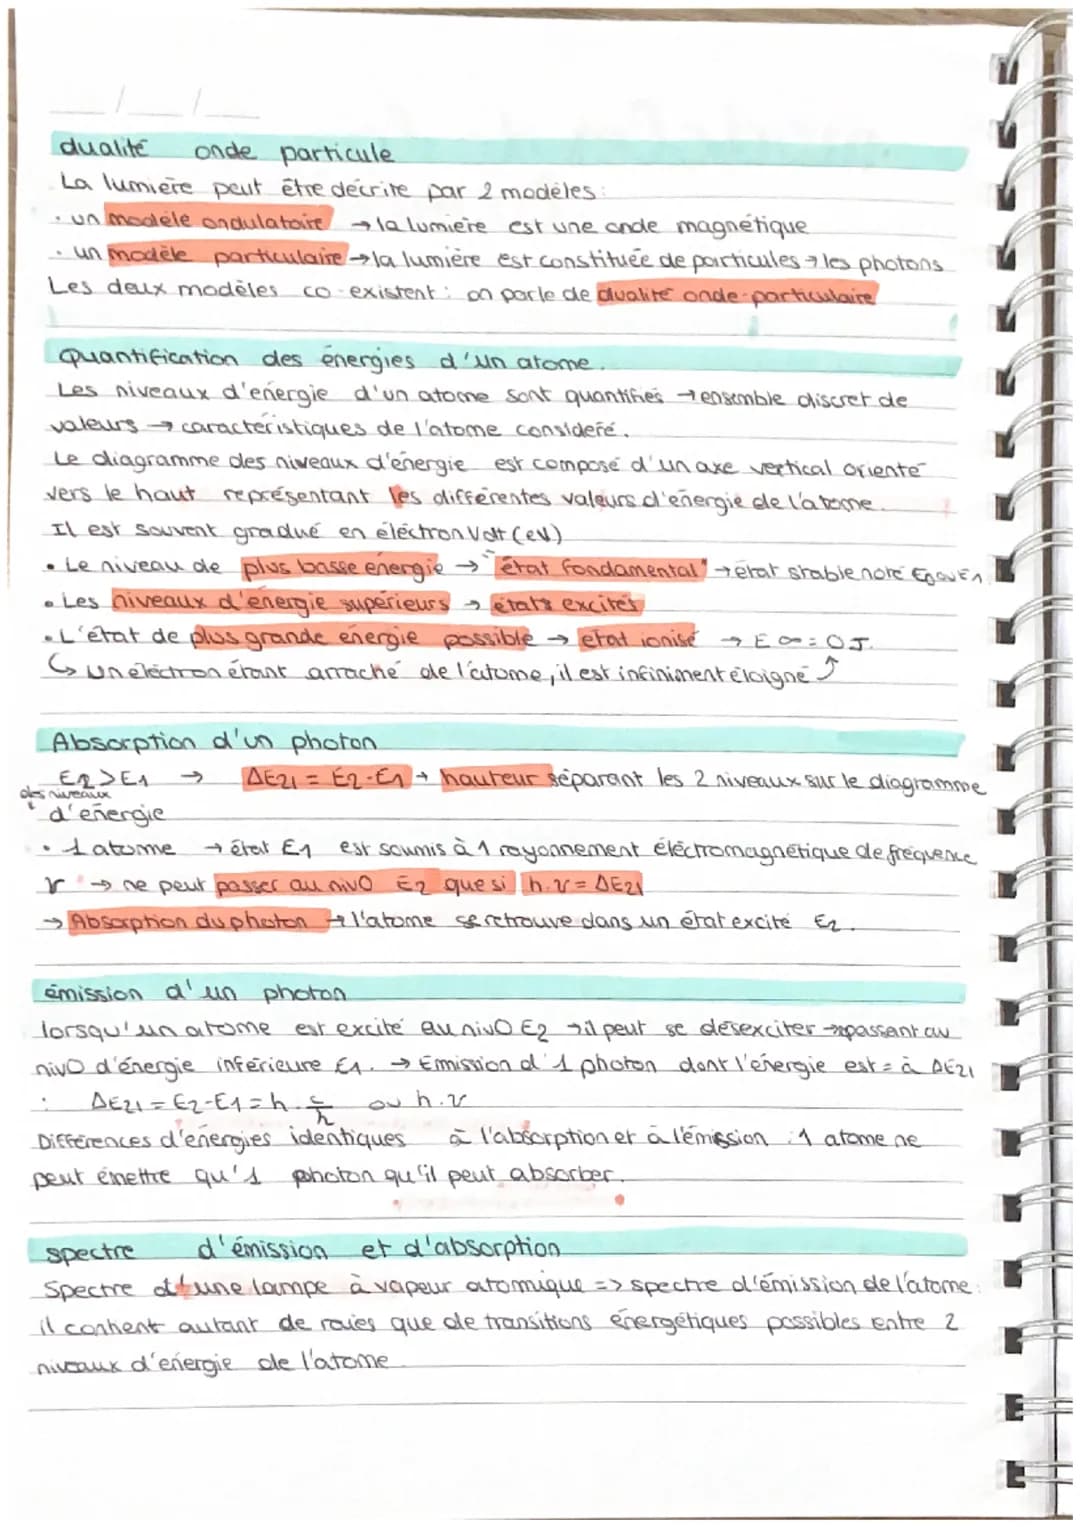 dualité onde particule
La lumière peut être décrite par 2 modèles :
· un modèle ondulatoire → la lumière est une onde magnétique
· un modèle particulaire → la lumière est constituée de particules → les photons
Les deux modèles co-existent : on parle de dualité onde-particulaire
Quantification des énergies d'un atome.
Les niveaux d'énergie d'un atome sont quantifiés → ensemble discret de
valeurs → caractéristiques de l'atome considéré.
Le diagramme des niveaux d'énergie est composé d'un axe vertical orienté
vers le haut représentant les différentes valeurs d'énergie de l'atome.
Il est souvent gradué en électron Volt (eV)
• Le niveau de plus basse énergie → "état fondamental" → état stable noté E0 ou E1
• Les niveaux d'énergie supérieurs → états excités
• L'état de plus grande énergie possible → état ionisé → E∞ = 0J.
↳ un électron étant arraché de l'atome, il est infiniment éloigné ⤴
Absorption d'un photon
E2 > E1 → ΔE21 = E2-E1 → hauteur séparant les 2 niveaux sur le diagramme
des niveaux
d'énergie
• 1 atome → état E1 est soumis à 1 rayonnement électromagnétique de fréquence
ν → ne peut passer au niv0 E2 que si h.ν = ΔE21
→ Absorption du photon → l'atome se retrouve dans un état excité E2.
émission d'un photon
lorsqu'un atome est excité au niv0 E2 → il peut se désexciter → passant au
niv0 d'énergie inférieure E1. → Émission d'1 photon dont l'énergie est = à ΔE21
: ΔE21 = E2-E1 = h.c/λ ou h.ν
Différences d'énergies identiques à l'absorption et à l'émission : 1 atome ne
peut émettre qu'1 photon qu'il peut absorber.
spectre d'émission et d'absorption
Spectre d'une lampe à vapeur atomique => spectre d'émission de l'atome :
il contient autant de raies que de transitions énergétiques possibles entre 2
niveaux d'énergie de l'atome.